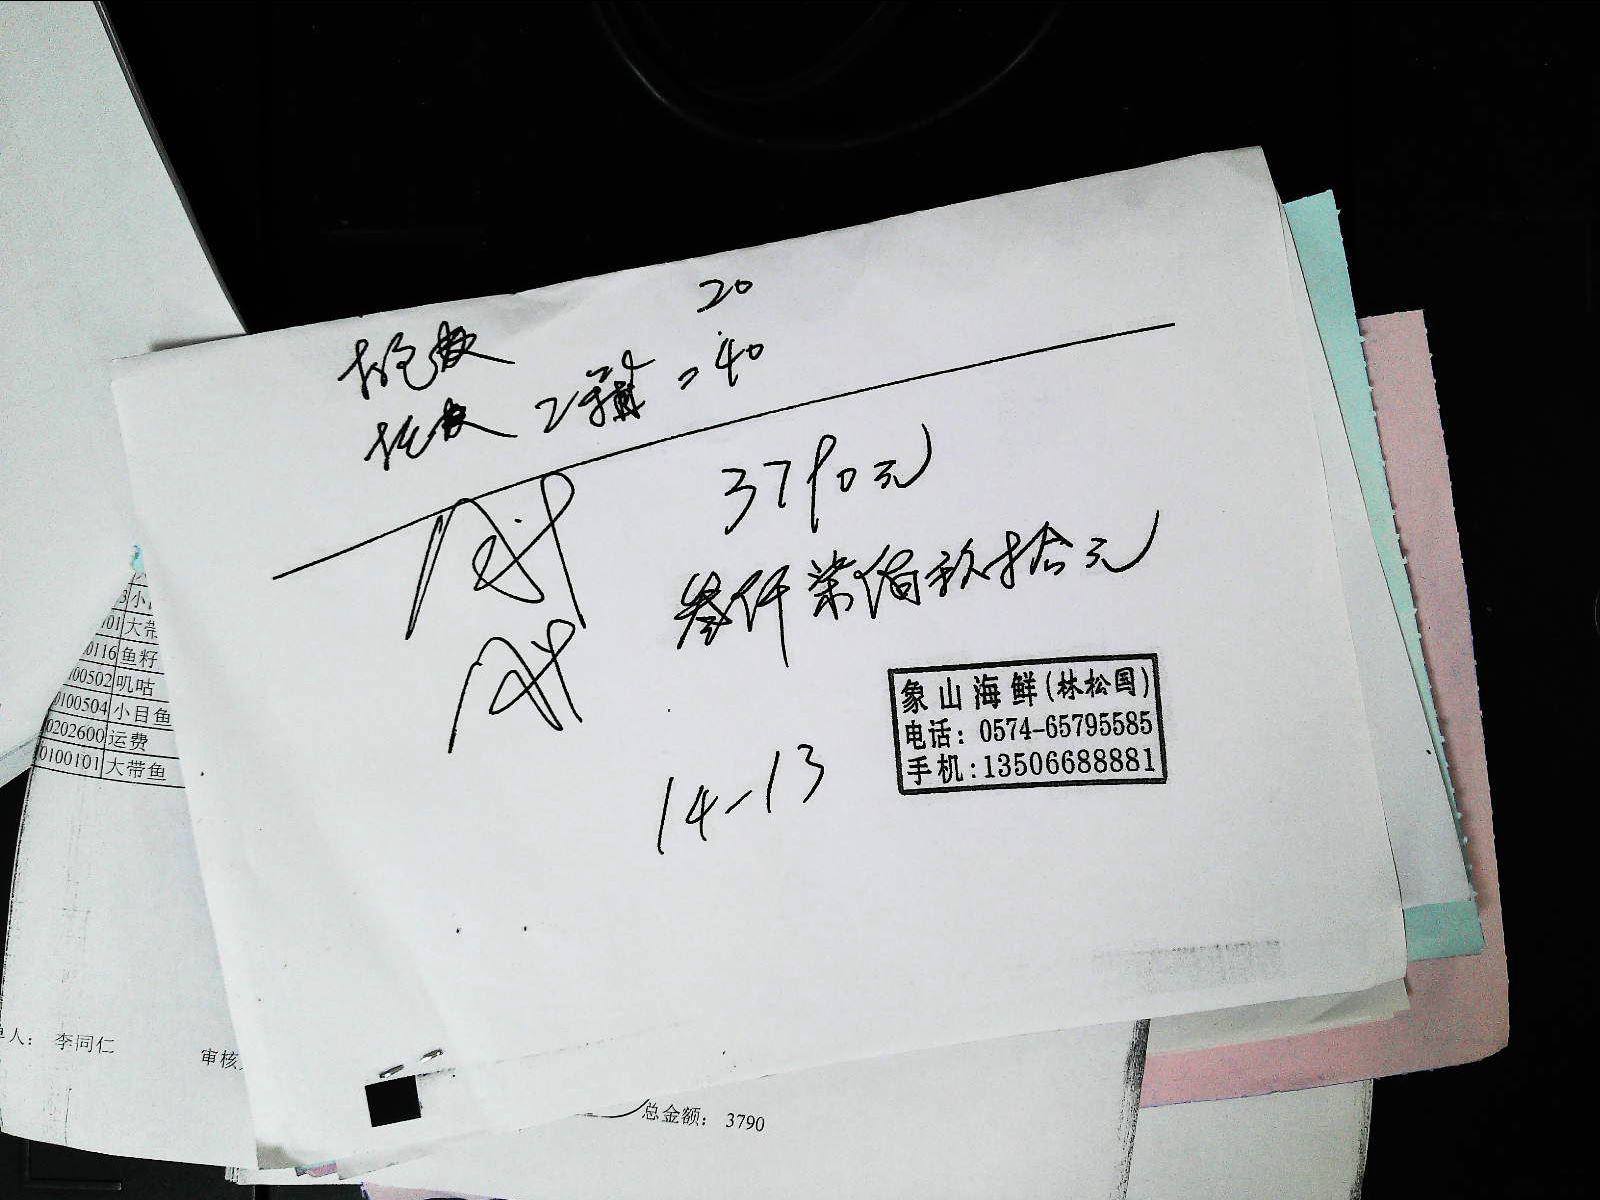 20
拖散
拖散 2箱 = 40
3790元
叁仟柒佰玖拾元
象山海鲜(林松国)
电话: 0574-65795585
手机:13506688881
14-13
3 小
01 大带
0116 鱼籽
00502 叽咕
0100504 小目鱼
0202600 运费
0100101 大带鱼
单人: 李同仁
审核
总金额: 3790